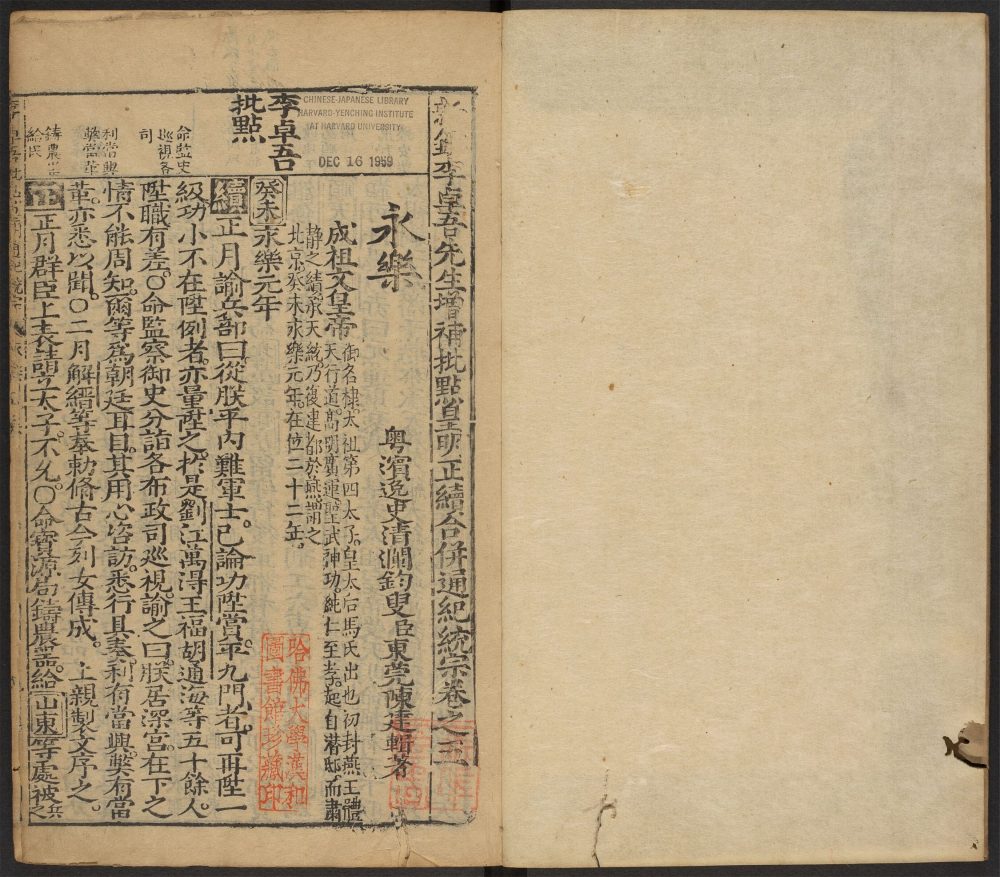 李卓吾先生增補批點皇明正續合併通紀統宗卷之五
粤濱逸史清瀾釣叟臣東莞陳建輯著
永樂
成祖文皇帝
御名棣太祖第四太子皇太后馬氏出也初封燕王體
天行道高明廣運聖武神功純仁至孝起自潜邸而肅
靜之續承天統乃復建都於燕謂之
北京癸未永樂元年在位二十二年
癸未永樂元年
續正月諭兵部曰從朕平内難軍士已論功陞賞平九門者可再陞一
級功小不在陞例者亦量陞之於是劉江萬得王福胡通海等五十餘人
陞職有差○命監察御史分詣各布政司巡視諭之曰朕居深宫在下之
情不能周知爾等爲朝廷耳目其用心咨訪悉行具奏利有當興獘有當
革亦悉以聞○二月解縉等奉勅脩古今列女傳成上親製文序之
正月群臣上表請立太子不允○命寶源局鑄農器給山東等處被兵之
李卓吾
批點
命監史
巡視各
司
利當興
獘當革
鑄農器
給民
CHINESE-JAPANESE LIBRARY
HARVARD-YENCHING INSTITUTE
AT HARVARD UNIVERSITY
DEC 16 1959
哈佛大學漢和
圖書館珍藏印